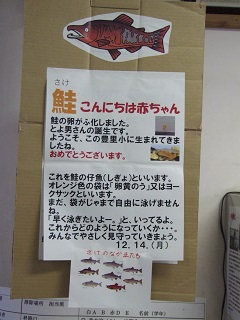 さけ
鮭 こんにちは赤ちゃん
鮭の卵がふ化しました。
とよ男さんの誕生です。
ようこそ、この豊里小に生まれてきま
したね。
おめでとうございます。
これを鮭の仔魚（しぎょ）といいます。
オレンジ色の袋は「卵黄のう」又はヨー
クサックといいます。
まだ、袋がじゃまで自由に泳げませ
んね。
「早く泳ぎたいよー。」と、いってるよ。
これからどのようになっていくか・・・。
みんなでやさしく見守っていきましょう。
12．14．（月）
さけのなかまたち